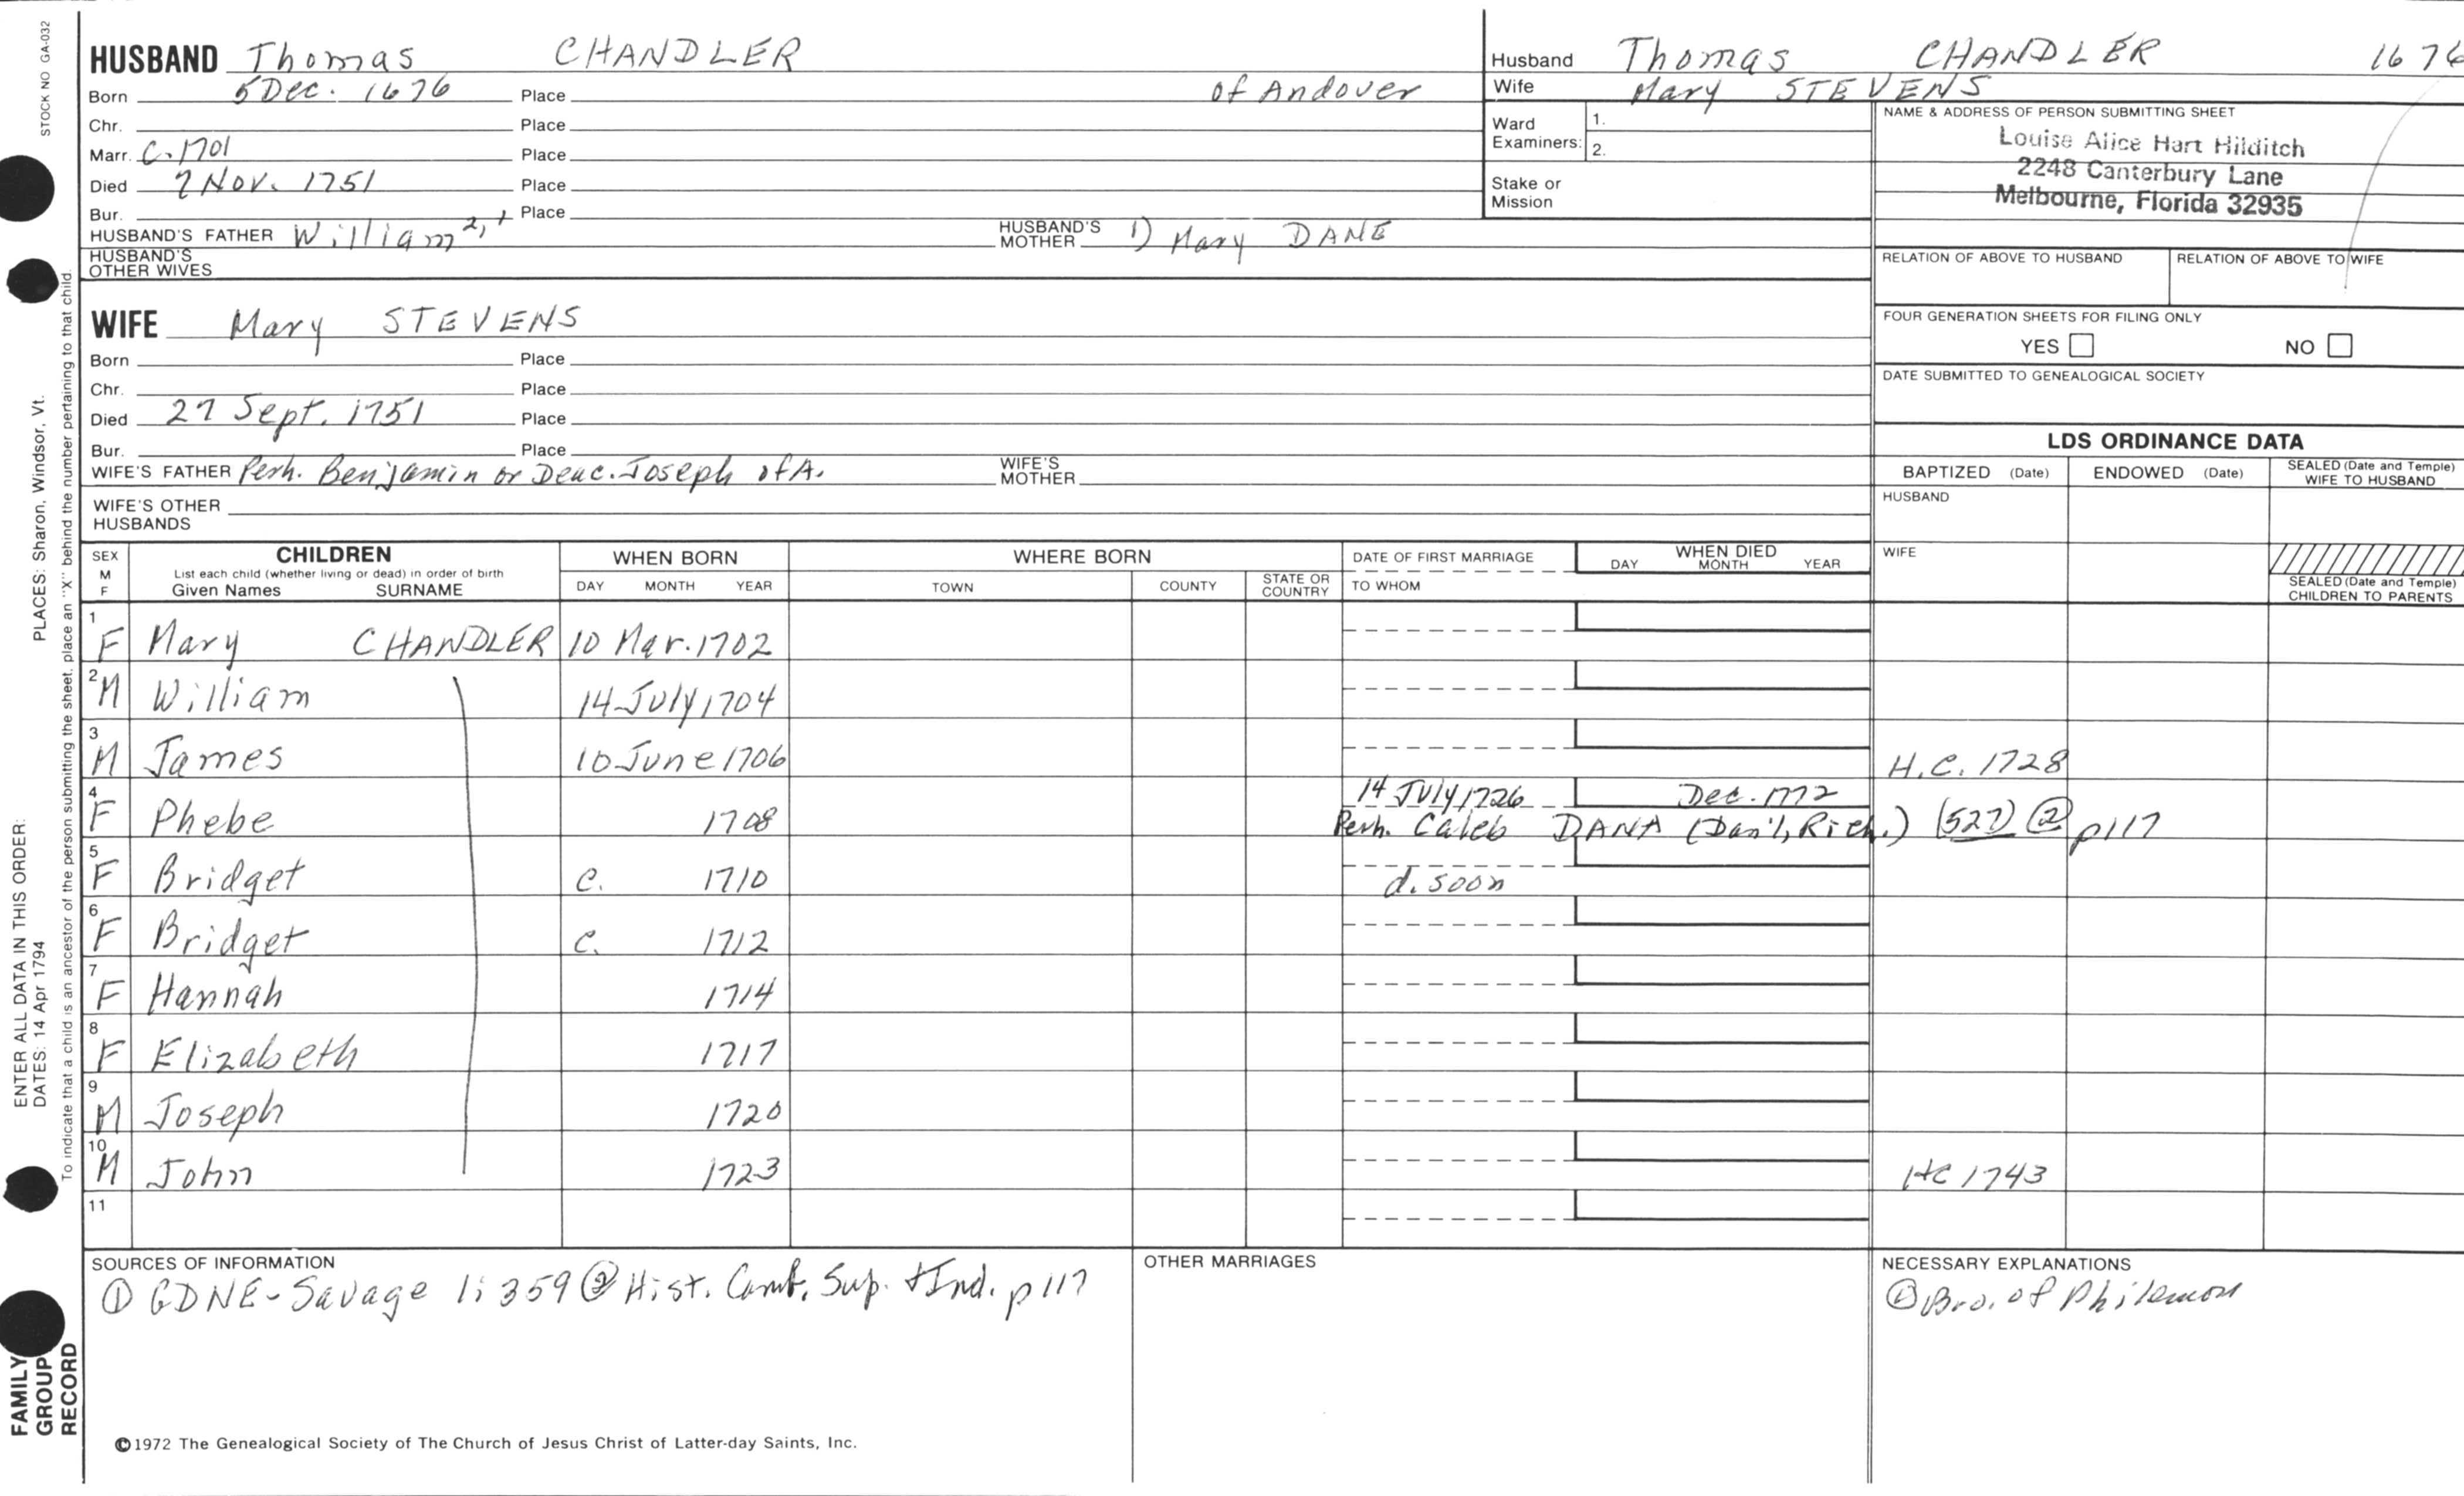 STOCK NO GA-032
HUSBAND Thomas CHANDLER
Born 5 Dec. 1676 Place of Andover
Chr. Place
Marr. C. 1701 Place
Died 7 Nov. 1751 Place
Bur. Place
HUSBAND'S FATHER William 2, 1 HUSBAND'S MOTHER 1) Mary DANE
HUSBAND'S OTHER WIVES
WIFE Mary STEVENS
Born Place
Chr. Place
Died 27 Sept. 1751 Place
Bur. Place
WIFE'S FATHER Perh. Benjamin or Deac. Joseph of A. WIFE'S MOTHER
WIFE'S OTHER HUSBANDS
Husband Thomas CHANDLER 1676
Wife Mary STEVENS
Ward Examiners: 1.
2.
Stake or Mission
NAME & ADDRESS OF PERSON SUBMITTING SHEET
Louise Alice Hart Hilditch
2248 Canterbury Lane
Melbourne, Florida 32935
RELATION OF ABOVE TO HUSBAND RELATION OF ABOVE TO WIFE
FOUR GENERATION SHEETS FOR FILING ONLY
YES NO
DATE SUBMITTED TO GENEALOGICAL SOCIETY
LDS ORDINANCE DATA
BAPTIZED (Date) ENDOWED (Date) SEALED (Date and Temple) WIFE TO HUSBAND
HUSBAND
WIFE
SEALED (Date and Temple) CHILDREN TO PARENTS
SEX M F CHILDREN WHEN BORN WHERE BORN DATE OF FIRST MARRIAGE WHEN DIED
List each child (whether living or dead) in order of birth
Given Names SURNAME DAY MONTH YEAR TOWN COUNTY STATE OR COUNTRY TO WHOM DAY MONTH YEAR
1 F Mary CHANDLER 10 Mar. 1702
2 M William 14 July 1704
3 M James 10 June 1706 H.C. 1728
4 F Phebe 1708 14 July 1726 Dec. 1772
Perh. Caleb DANA (Dan'l, Rich.) (527) ② p 117
5 F Bridget c. 1710 d. soon
6 F Bridget c. 1712
7 F Hannah 1714
8 F Elizabeth 1717
9 M Joseph 1720
10 M John 1723 HC 1743
11
SOURCES OF INFORMATION
① GDNE-Savage 1: 359 ② Hist. Camb. Sup. + Ind. p 117
OTHER MARRIAGES
NECESSARY EXPLANATIONS
Bro. of Philemon
©1972 The Genealogical Society of The Church of Jesus Christ of Latter-day Saints, Inc.
ENTER ALL DATA IN THIS ORDER:
DATES: 14 Apr 1794 PLACES: Sharon, Windsor, Vt.
To indicate that a child is an ancestor of the person submitting the sheet, place an "X" behind the number pertaining to that child
FAMILY GROUP RECORD